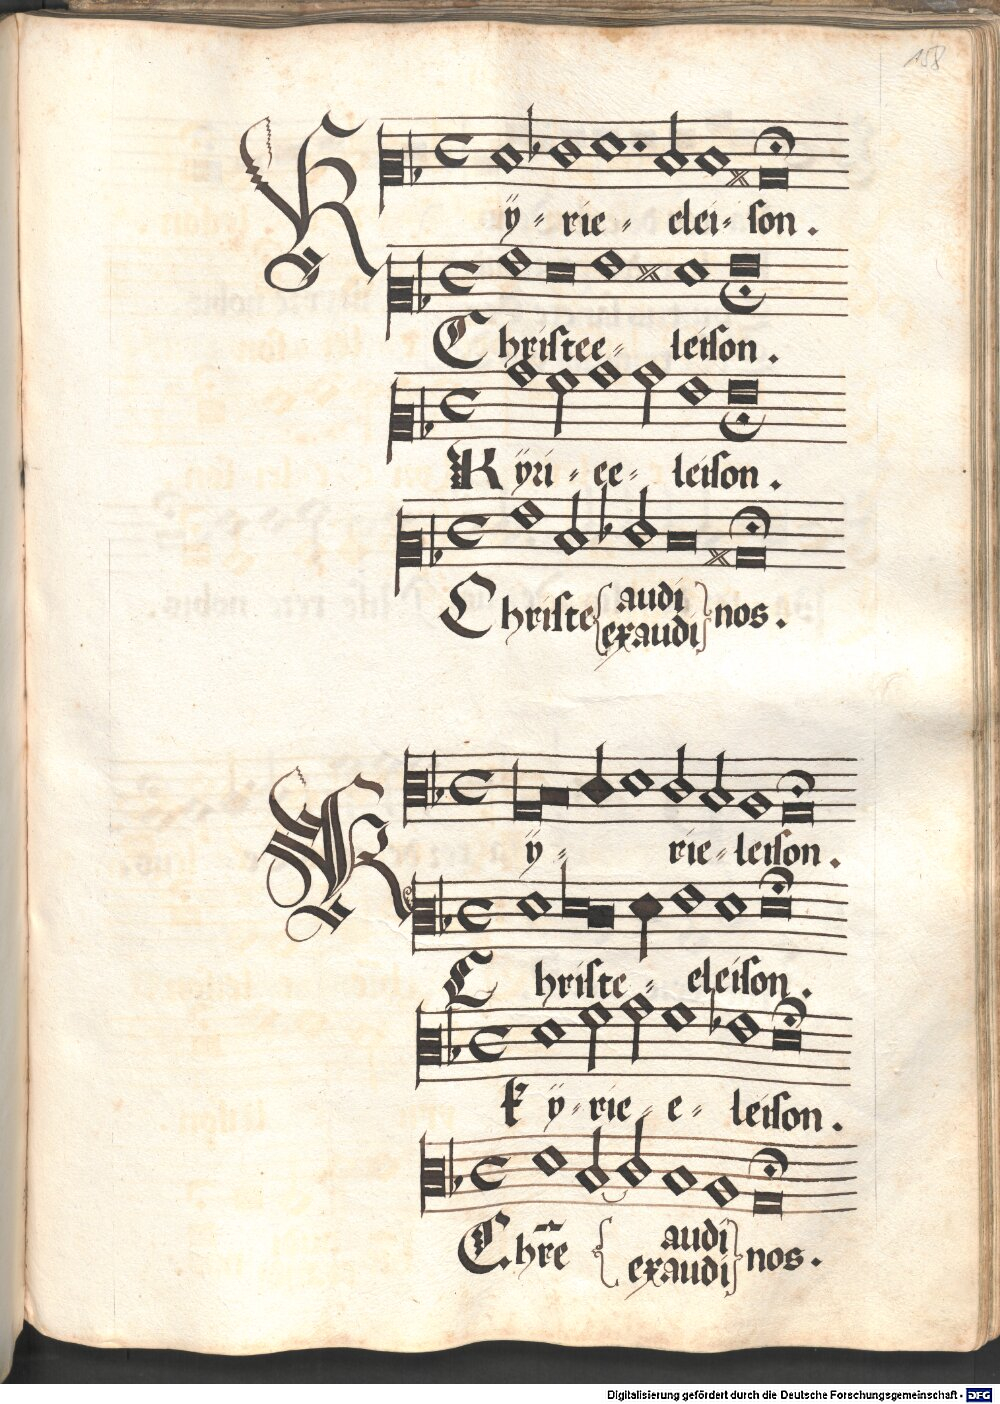 158
Kÿ - rie - elei - ſon .
Chriſtee - leiſon .
Kÿri - ee - leiſon .
Chriſte { audi
exaudi } nos .
Kÿ - rie - leiſon .
Chriſte - eleiſon .
kÿ - rie - e - leiſon .
Chr̄e { audi
exaudi } nos .
Digitalisierung gefördert durch die Deutsche Forschungsgemeinschaft - DFG